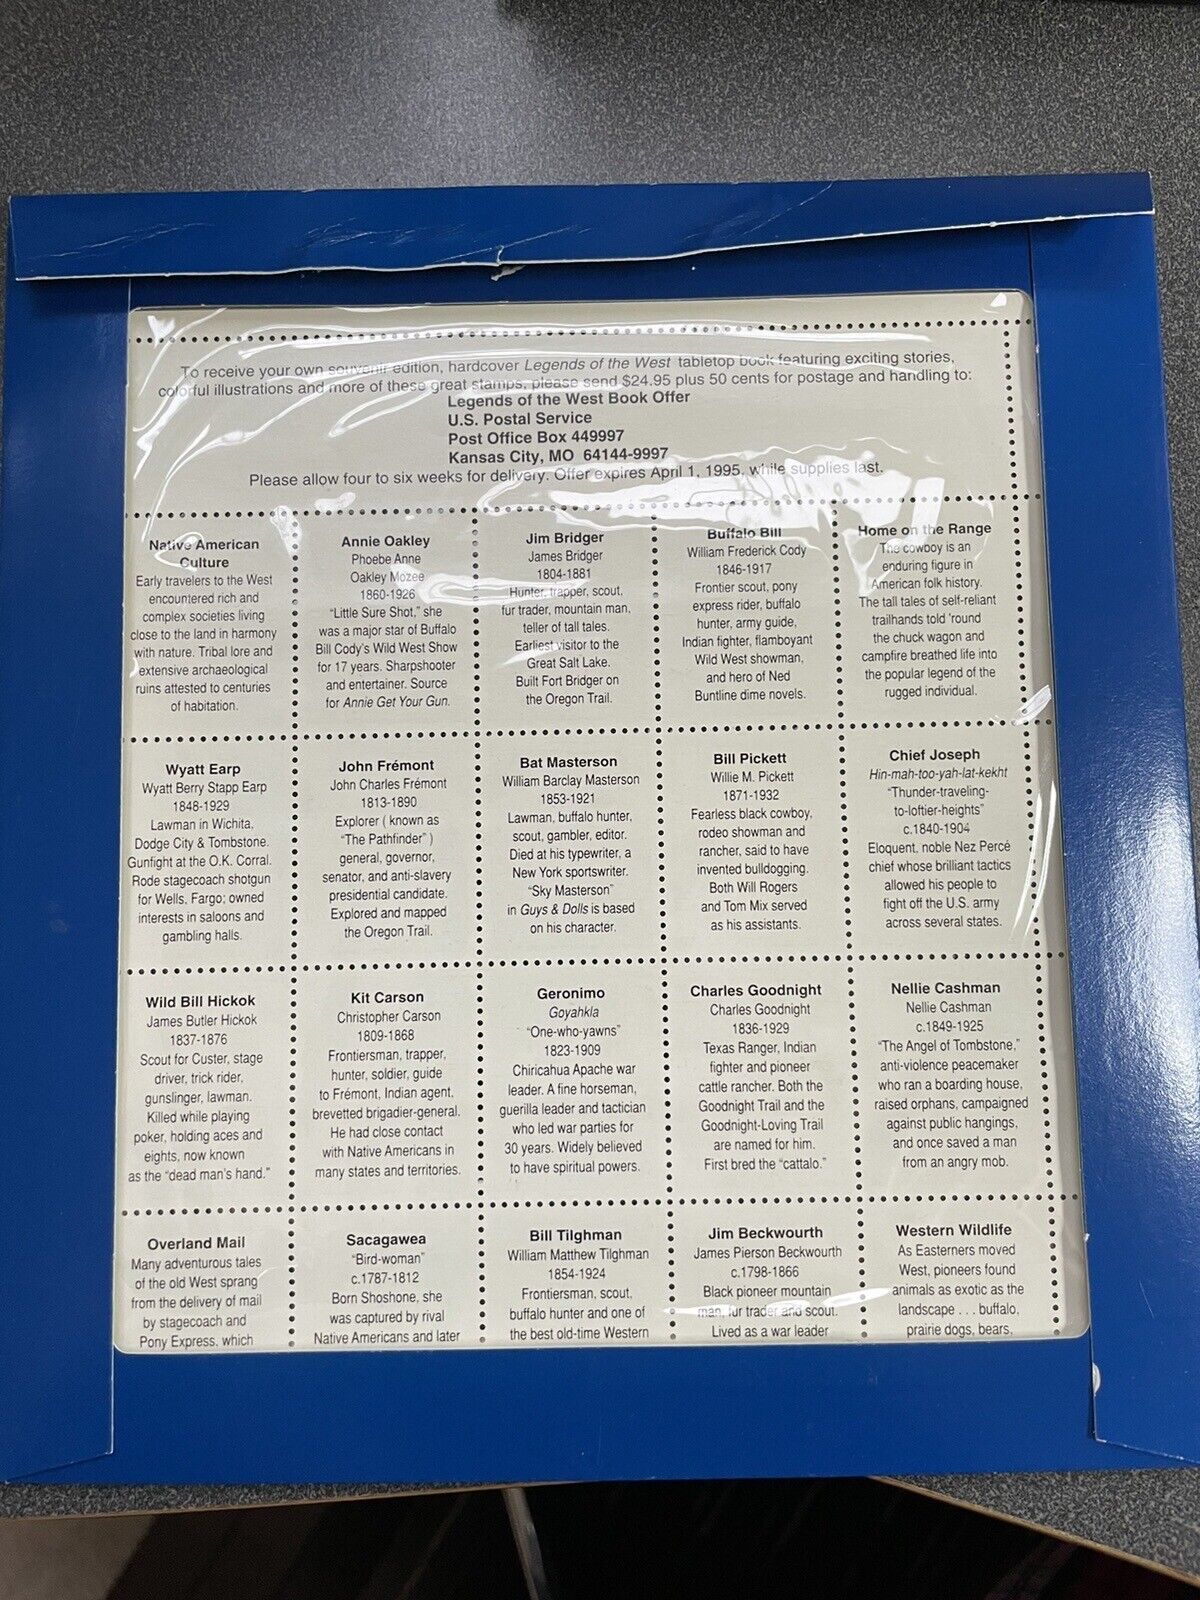 To receive your own souvenir edition, hardcover Legends of the West tabletop book featuring exciting stories,
colorful illustrations and more of these great stamps, please send $24.95 plus 50 cents for postage and handling to:
Legends of the West Book Offer
U.S. Postal Service
Post Office Box 449997
Kansas City, MO 64144-9997
Please allow four to six weeks for delivery. Offer expires April 1, 1995, while supplies last.
Native American
Culture
Early travelers to the West
encountered rich and
complex societies living
close to the land in harmony
with nature. Tribal lore and
extensive archaeological
ruins attested to centuries
of habitation.
Annie Oakley
Phoebe Anne
Oakley Mozee
1860-1926
"Little Sure Shot," she
was a major star of Buffalo
Bill Cody's Wild West Show
for 17 years. Sharpshooter
and entertainer. Source
for Annie Get Your Gun.
Jim Bridger
James Bridger
1804-1881
Hunter, trapper, scout,
fur trader, mountain man,
teller of tall tales.
Earliest visitor to the
Great Salt Lake.
Built Fort Bridger on
the Oregon Trail.
Buffalo Bill
William Frederick Cody
1846-1917
Frontier scout, pony
express rider, buffalo
hunter, army guide,
Indian fighter, flamboyant
Wild West showman,
and hero of Ned
Buntline dime novels.
Home on the Range
The cowboy is an
enduring figure in
American folk history.
The tall tales of self-reliant
trailhands told 'round
the chuck wagon and
campfire breathed life into
the popular legend of the
rugged individual.
Wyatt Earp
Wyatt Berry Stapp Earp
1848-1929
Lawman in Wichita,
Dodge City & Tombstone.
Gunfight at the O.K. Corral.
Rode stagecoach shotgun
for Wells, Fargo; owned
interests in saloons and
gambling halls.
John Frémont
John Charles Frémont
1813-1890
Explorer ( known as
"The Pathfinder" )
general, governor,
senator, and anti-slavery
presidential candidate.
Explored and mapped
the Oregon Trail.
Bat Masterson
William Barclay Masterson
1853-1921
Lawman, buffalo hunter,
scout, gambler, editor.
Died at his typewriter, a
New York sportswriter.
"Sky Masterson"
in Guys & Dolls is based
on his character.
Bill Pickett
Willie M. Pickett
1871-1932
Fearless black cowboy,
rodeo showman and
rancher, said to have
invented bulldogging.
Both Will Rogers
and Tom Mix served
as his assistants.
Chief Joseph
Hin-mah-too-yah-lat-kekht
"Thunder-traveling-
to-loftier-heights"
c.1840-1904
Eloquent, noble Nez Percé
chief whose brilliant tactics
allowed his people to
fight off the U.S. army
across several states.
Wild Bill Hickok
James Butler Hickok
1837-1876
Scout for Custer, stage
driver, trick rider,
gunslinger, lawman.
Killed while playing
poker, holding aces and
eights, now known
as the "dead man's hand."
Kit Carson
Christopher Carson
1809-1868
Frontiersman, trapper,
hunter, soldier, guide
to Frémont, Indian agent,
brevetted brigadier-general.
He had close contact
with Native Americans in
many states and territories.
Geronimo
Goyahkla
"One-who-yawns"
1823-1909
Chiricahua Apache war
leader. A fine horseman,
guerilla leader and tactician
who led war parties for
30 years. Widely believed
to have spiritual powers.
Charles Goodnight
Charles Goodnight
1836-1929
Texas Ranger, Indian
fighter and pioneer
cattle rancher. Both the
Goodnight Trail and the
Goodnight-Loving Trail
are named for him.
First bred the "cattalo."
Nellie Cashman
Nellie Cashman
c.1849-1925
"The Angel of Tombstone,"
anti-violence peacemaker
who ran a boarding house,
raised orphans, campaigned
against public hangings,
and once saved a man
from an angry mob.
Overland Mail
Many adventurous tales
of the old West sprang
from the delivery of mail
by stagecoach and
Pony Express, which
Sacagawea
"Bird-woman"
c.1787-1812
Born Shoshone, she
was captured by rival
Native Americans and later
Bill Tilghman
William Matthew Tilghman
1854-1924
Frontiersman, scout,
buffalo hunter and one of
the best old-time Western
Jim Beckwourth
James Pierson Beckwourth
c.1798-1866
Black pioneer mountain
man, fur trader and scout.
Lived as a war leader
Western Wildlife
As Easterners moved
West, pioneers found
animals as exotic as the
landscape . . . buffalo,
prairie dogs, bears,